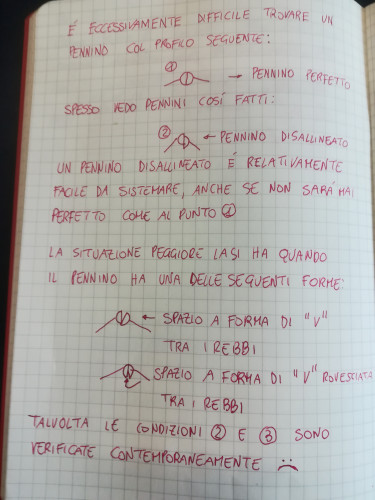 É ECCESSIVAMENTE DIFFICILE TROVARE UN
PENNINO COL PROFILO SEGUENTE:
① → PENNINO PERFETTO
SPESSO VEDO PENNINI COSÍ FATTI:
② ← PENNINO DISALLINEATO
UN PENNINO DISALLINEATO É RELATIVAMENTE
FACILE DA SISTEMARE, ANCHE SE NON SARÁ MAI
PERFETTO COME AL PUNTO ①
LA SITUAZIONE PEGGIORE LA SI HA QUANDO
IL PENNINO HA UNA DELLE SEGUENTI FORME:
← SPAZIO A FORMA DI "V"
TRA I REBBI
SPAZIO A FORMA DI "V" ROVESCIATA
TRA I REBBI
TALVOLTA LE CONDIZIONI ② E ③ SONO
VERIFICATE CONTEMPORANEAMENTE ☹